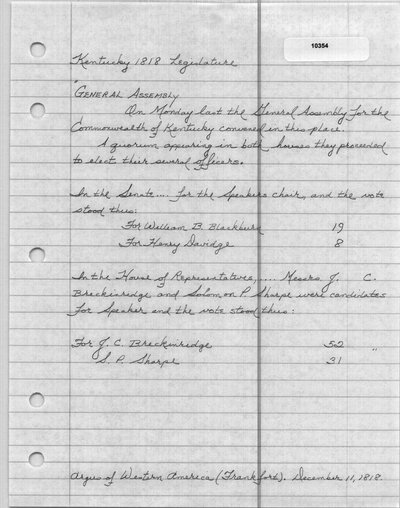 10354
Kentucky 1818 Legislature
"GENERAL ASSEMBLY
On Monday last the General Assembly for the
Commonwealth of Kentucky convened in this place.
A quorum appearing in both houses they proceeded
to elect their several officers.
In the Senate.... for the Speakers chair, and the vote
stood thus:
For William B. Blackburn 19
For Henry Davidge 8
In the House of Representatives,.... Messrs J. C.
Breckinridge and Solomon P. Sharpe were candidates
for Speaker and the vote stood thus:
For J. C. Breckinridge 52
S. P. Sharpe 31 "
Argus of Western America (Frankfort). December 11, 1818.